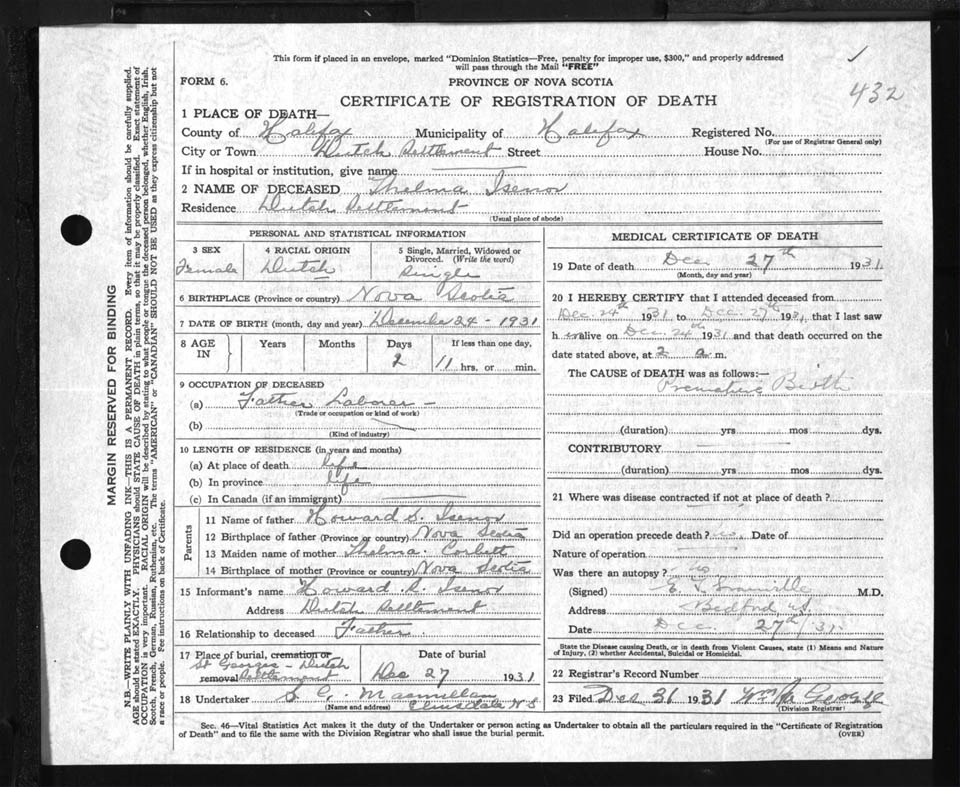 This form if placed in an envelope, marked "Dominion Statistics—Free, penalty for improper use, $300," and properly addressed
will pass through the Mail "FREE"
432
FORM 6.
PROVINCE OF NOVA SCOTIA
CERTIFICATE OF REGISTRATION OF DEATH
1 PLACE OF DEATH—
County of Halifax Municipality of Halifax Registered No.
(For use of Registrar General only)
City or Town Dutch Settlement Street House No.
If in hospital or institution, give name
2 NAME OF DECEASED Thelma Isenor
Residence Dutch Settlement
(Usual place of abode)
PERSONAL AND STATISTICAL INFORMATION
3 SEX Female
4 RACIAL ORIGIN Dutch
5 Single, Married, Widowed or
Divorced. (Write the word)
Single
6 BIRTHPLACE (Province or country) Nova Scotia
7 DATE OF BIRTH (month, day and year) December 24 - 1931
8 AGE IN Years Months Days 2 If less than one day,
11 hrs. or min.
9 OCCUPATION OF DECEASED
(a) Father Laborer -
(Trade or occupation or kind of work)
(b)
(Kind of industry)
10 LENGTH OF RESIDENCE (in years and months)
(a) At place of death life
(b) In province life
(c) In Canada (if an immigrant)
Parents
11 Name of father Howard S. Isenor
12 Birthplace of father (Province or country) Nova Scotia
13 Maiden name of mother Thelma Corbett
14 Birthplace of mother (Province or country) Nova Scotia
15 Informant's name Howard Isenor
Address Dutch Settlement
16 Relationship to deceased Father
17 Place of burial, cremation or
removal St Georges - Dutch
Settlement
Date of burial
Dec 27 1931
18 Undertaker Macmillan
(Name and address) Elmsdale N.S
MEDICAL CERTIFICATE OF DEATH
19 Date of death Dec. 27th 1931
(Month, day and year)
20 I HEREBY CERTIFY that I attended deceased from
Dec 24th 1931 to Dec. 27th 1931, that I last saw
h er alive on Dec. 24th 1931 and that death occurred on the
date stated above, at 2 a m.
The CAUSE of DEATH was as follows:—
Premature Birth
(duration) yrs mos dys.
CONTRIBUTORY
(duration) yrs mos dys.
21 Where was disease contracted if not at place of death?
Did an operation precede death? no Date of
Nature of operation
Was there an autopsy? no
(Signed) M.D.
Address Bedford N.S.
Date Dec. 27th/31.
State the Disease causing Death, or in death from Violent Causes, state (1) Means and Nature
of Injury, (2) whether Accidental, Suicidal or Homicidal.
22 Registrar's Record Number
23 Filed Dec 31 1931
(Division Registrar)
Sec. 46—Vital Statistics Act makes it the duty of the Undertaker or person acting as Undertaker to obtain all the particulars required in the "Certificate of Registration
of Death" and to file the same with the Division Registrar who shall issue the burial permit.
(OVER)
MARGIN RESERVED FOR BINDING
N.B.—WRITE PLAINLY WITH UNFADING INK—THIS IS A PERMANENT RECORD. Every item of information should be carefully supplied.
AGE should be stated EXACTLY. PHYSICIANS should STATE CAUSE OF DEATH in plain terms, so that it may be properly classified. Exact statement of
OCCUPATION is very important. RACIAL ORIGIN will be described by stating to what people or tongue the deceased person belonged, whether English, Irish,
Scotch, French, German, Russian, Ruthenian, etc. The terms "AMERICAN" or "CANADIAN" SHOULD NOT BE USED as they express citizenship but not
a race or people. Fee instructions on back of Certificate.